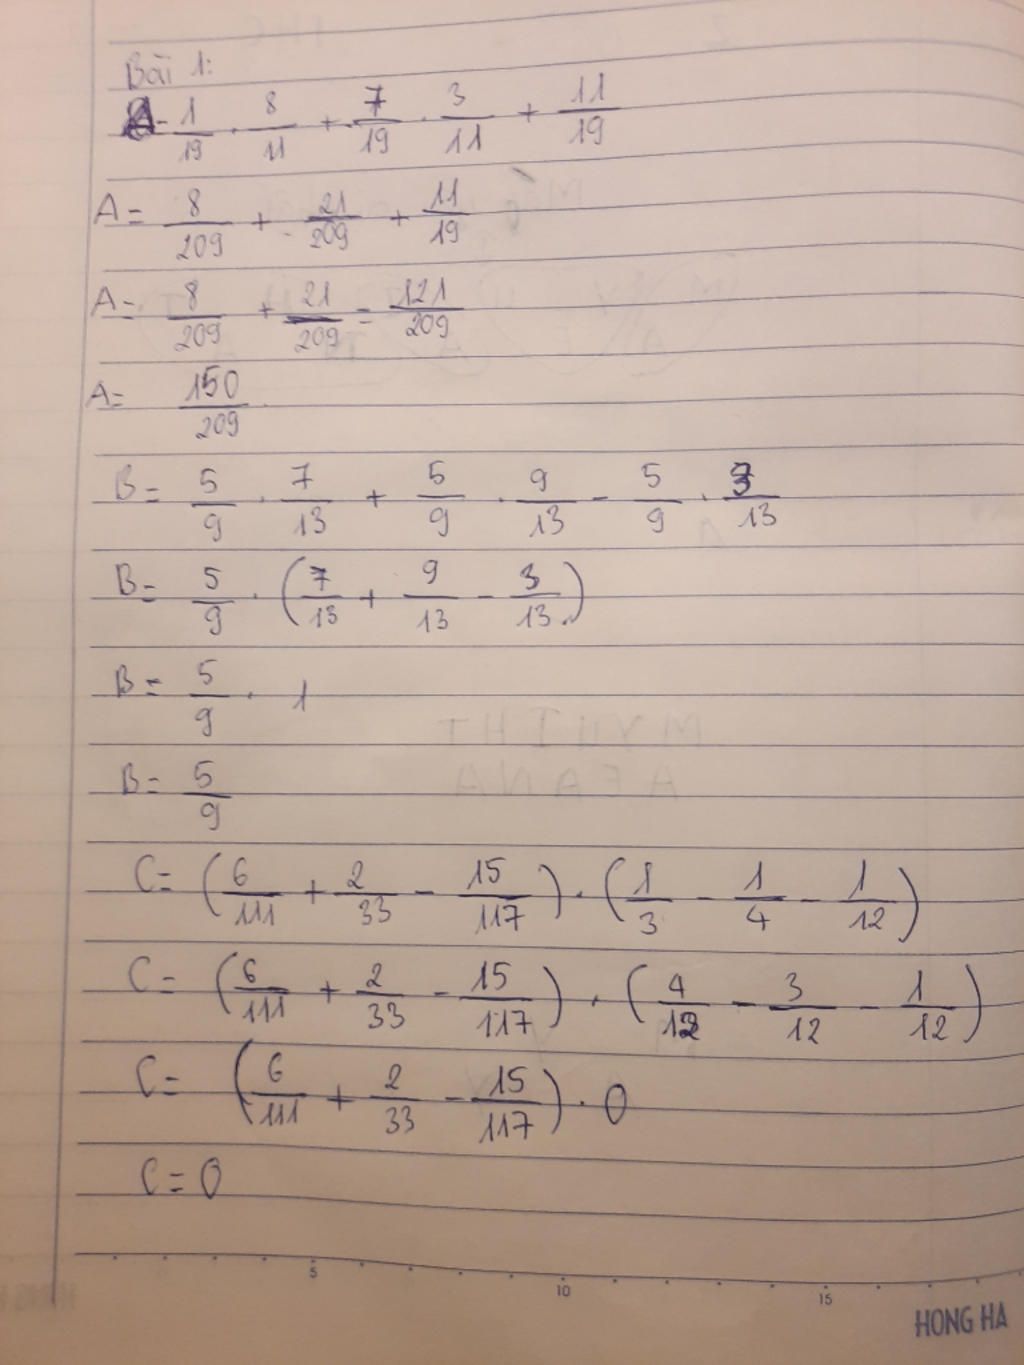 Bài 1:
A = 1/19 . 8/11 + 7/19 . 3/11 + 11/19
A = 8/209 + 21/209 + 11/19
A = 8/209 + 21/209 = 121/209
A = 150/209
B = 5/9 . 7/13 + 5/9 . 9/13 - 5/9 . 3/13
B = 5/9 . (7/13 + 9/13 - 3/13)
B = 5/9 . 1
B = 5/9
C = (6/111 + 2/33 - 15/117) . (1/3 - 1/4 - 1/12)
C = (6/111 + 2/33 - 15/117) . (4/12 - 3/12 - 1/12)
C = (6/111 + 2/33 - 15/117) . 0
C = 0
5 10 15
HONG HA